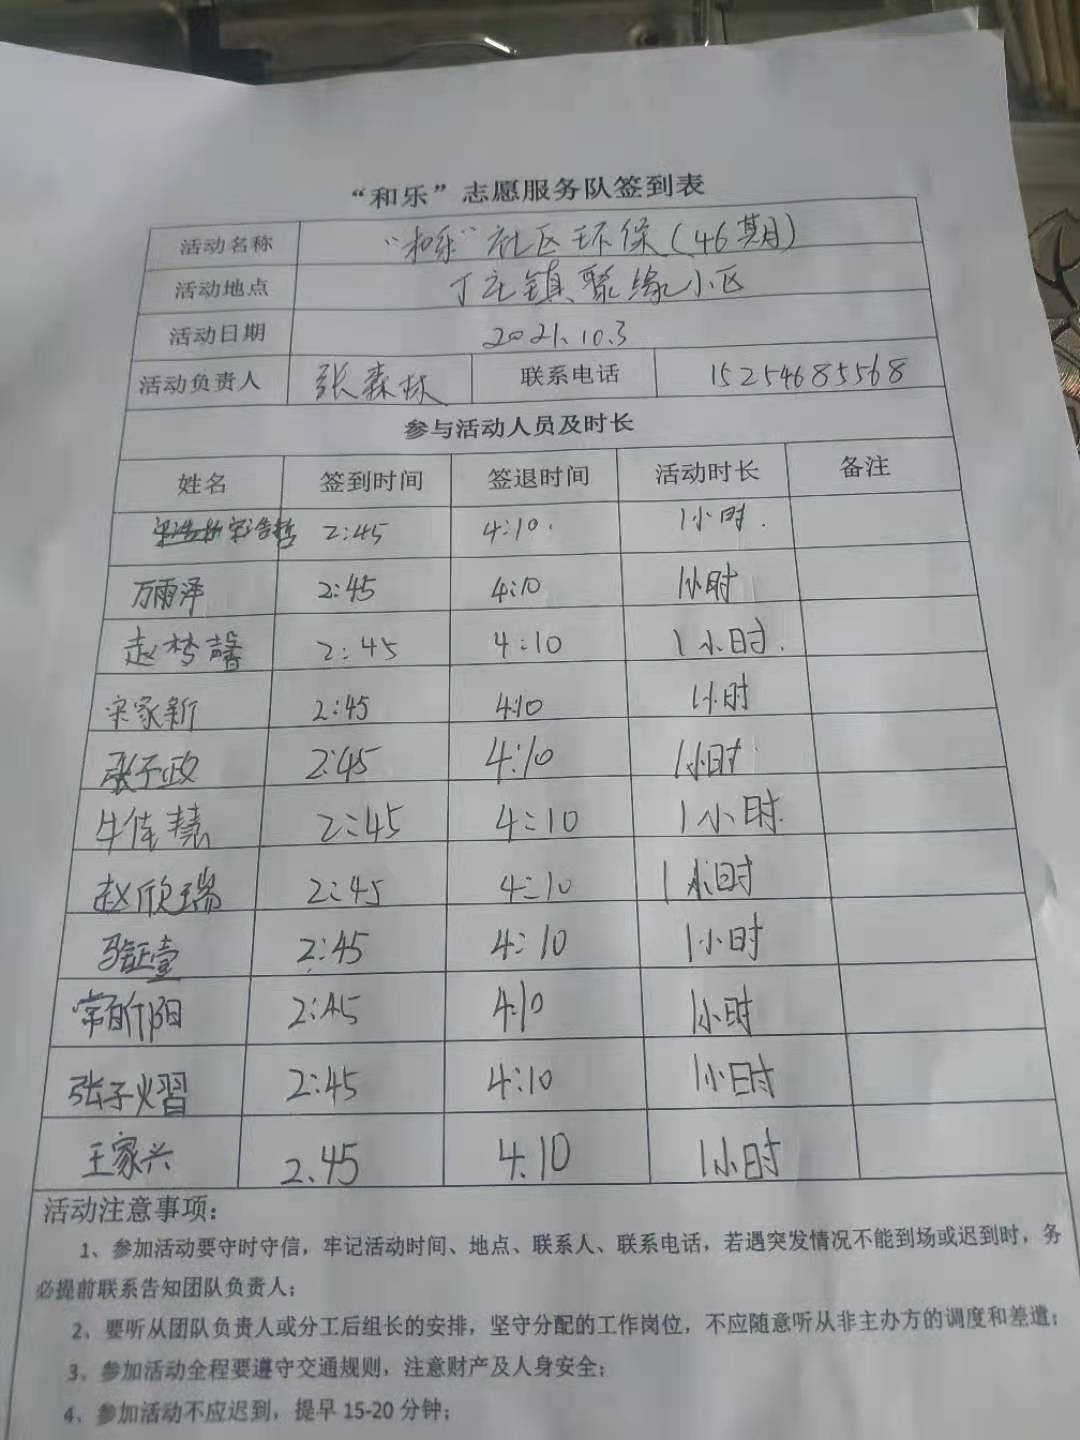 “和乐”志愿服务队签到表
活动名称 “和乐”社区环保(46期)
活动地点 丁庄镇聚缘小区
活动日期 2021.10.3
活动负责人 张森林 联系电话 15254685568
参与活动人员及时长
姓名 签到时间 签退时间 活动时长 备注
宋浩哲 2:45 4:10. 1小时.
万雨泽 2:45 4:10 1小时
赵梦馨 2:45 4:10 1小时.
宋家新 2:45 4:10 1小时
张子政 2:45 4:10 1小时
牛佳慧 2:45 4:10 1小时.
赵欣瑞 2:45 4:10 1小时
2:45 4:10 1小时
常昕阳 2:45 4:10 1小时
张子熠 2:45 4:10 1小时
王家兴 2.45 4.10 1小时
活动注意事项:
1、参加活动要守时守信，牢记活动时间、地点、联系人、联系电话，若遇突发情况不能到场或迟到时，务
必提前联系告知团队负责人;
2、要听从团队负责人或分工后组长的安排，坚守分配的工作岗位，不应随意听从非主办方的调度和差遣;
3、参加活动全程要遵守交通规则，注意财产及人身安全;
4、参加活动不应迟到，提早 15-20 分钟;